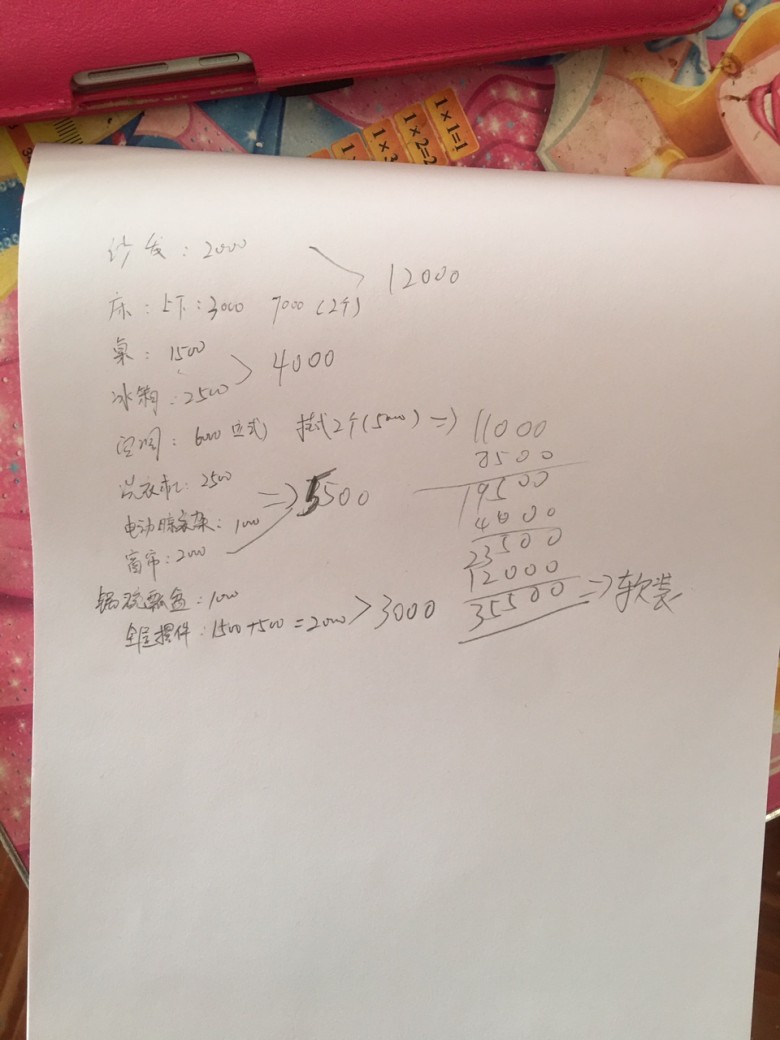 1×1=1
1×2=2
1×3
沙发：2000
12000
床：上下：3000 7000（2个）
桌：1500
4000
冰箱：2500
空调：6000 立式） 挂式2个（5000）=> 11000
8500
洗衣机：2500
19500
=> 5500
电动晾衣架：1000
4000
窗帘：2000
23500
12000
锅碗瓢盆：1000
35500 => 软装
全屋摆件：1500+500=2000 > 3000